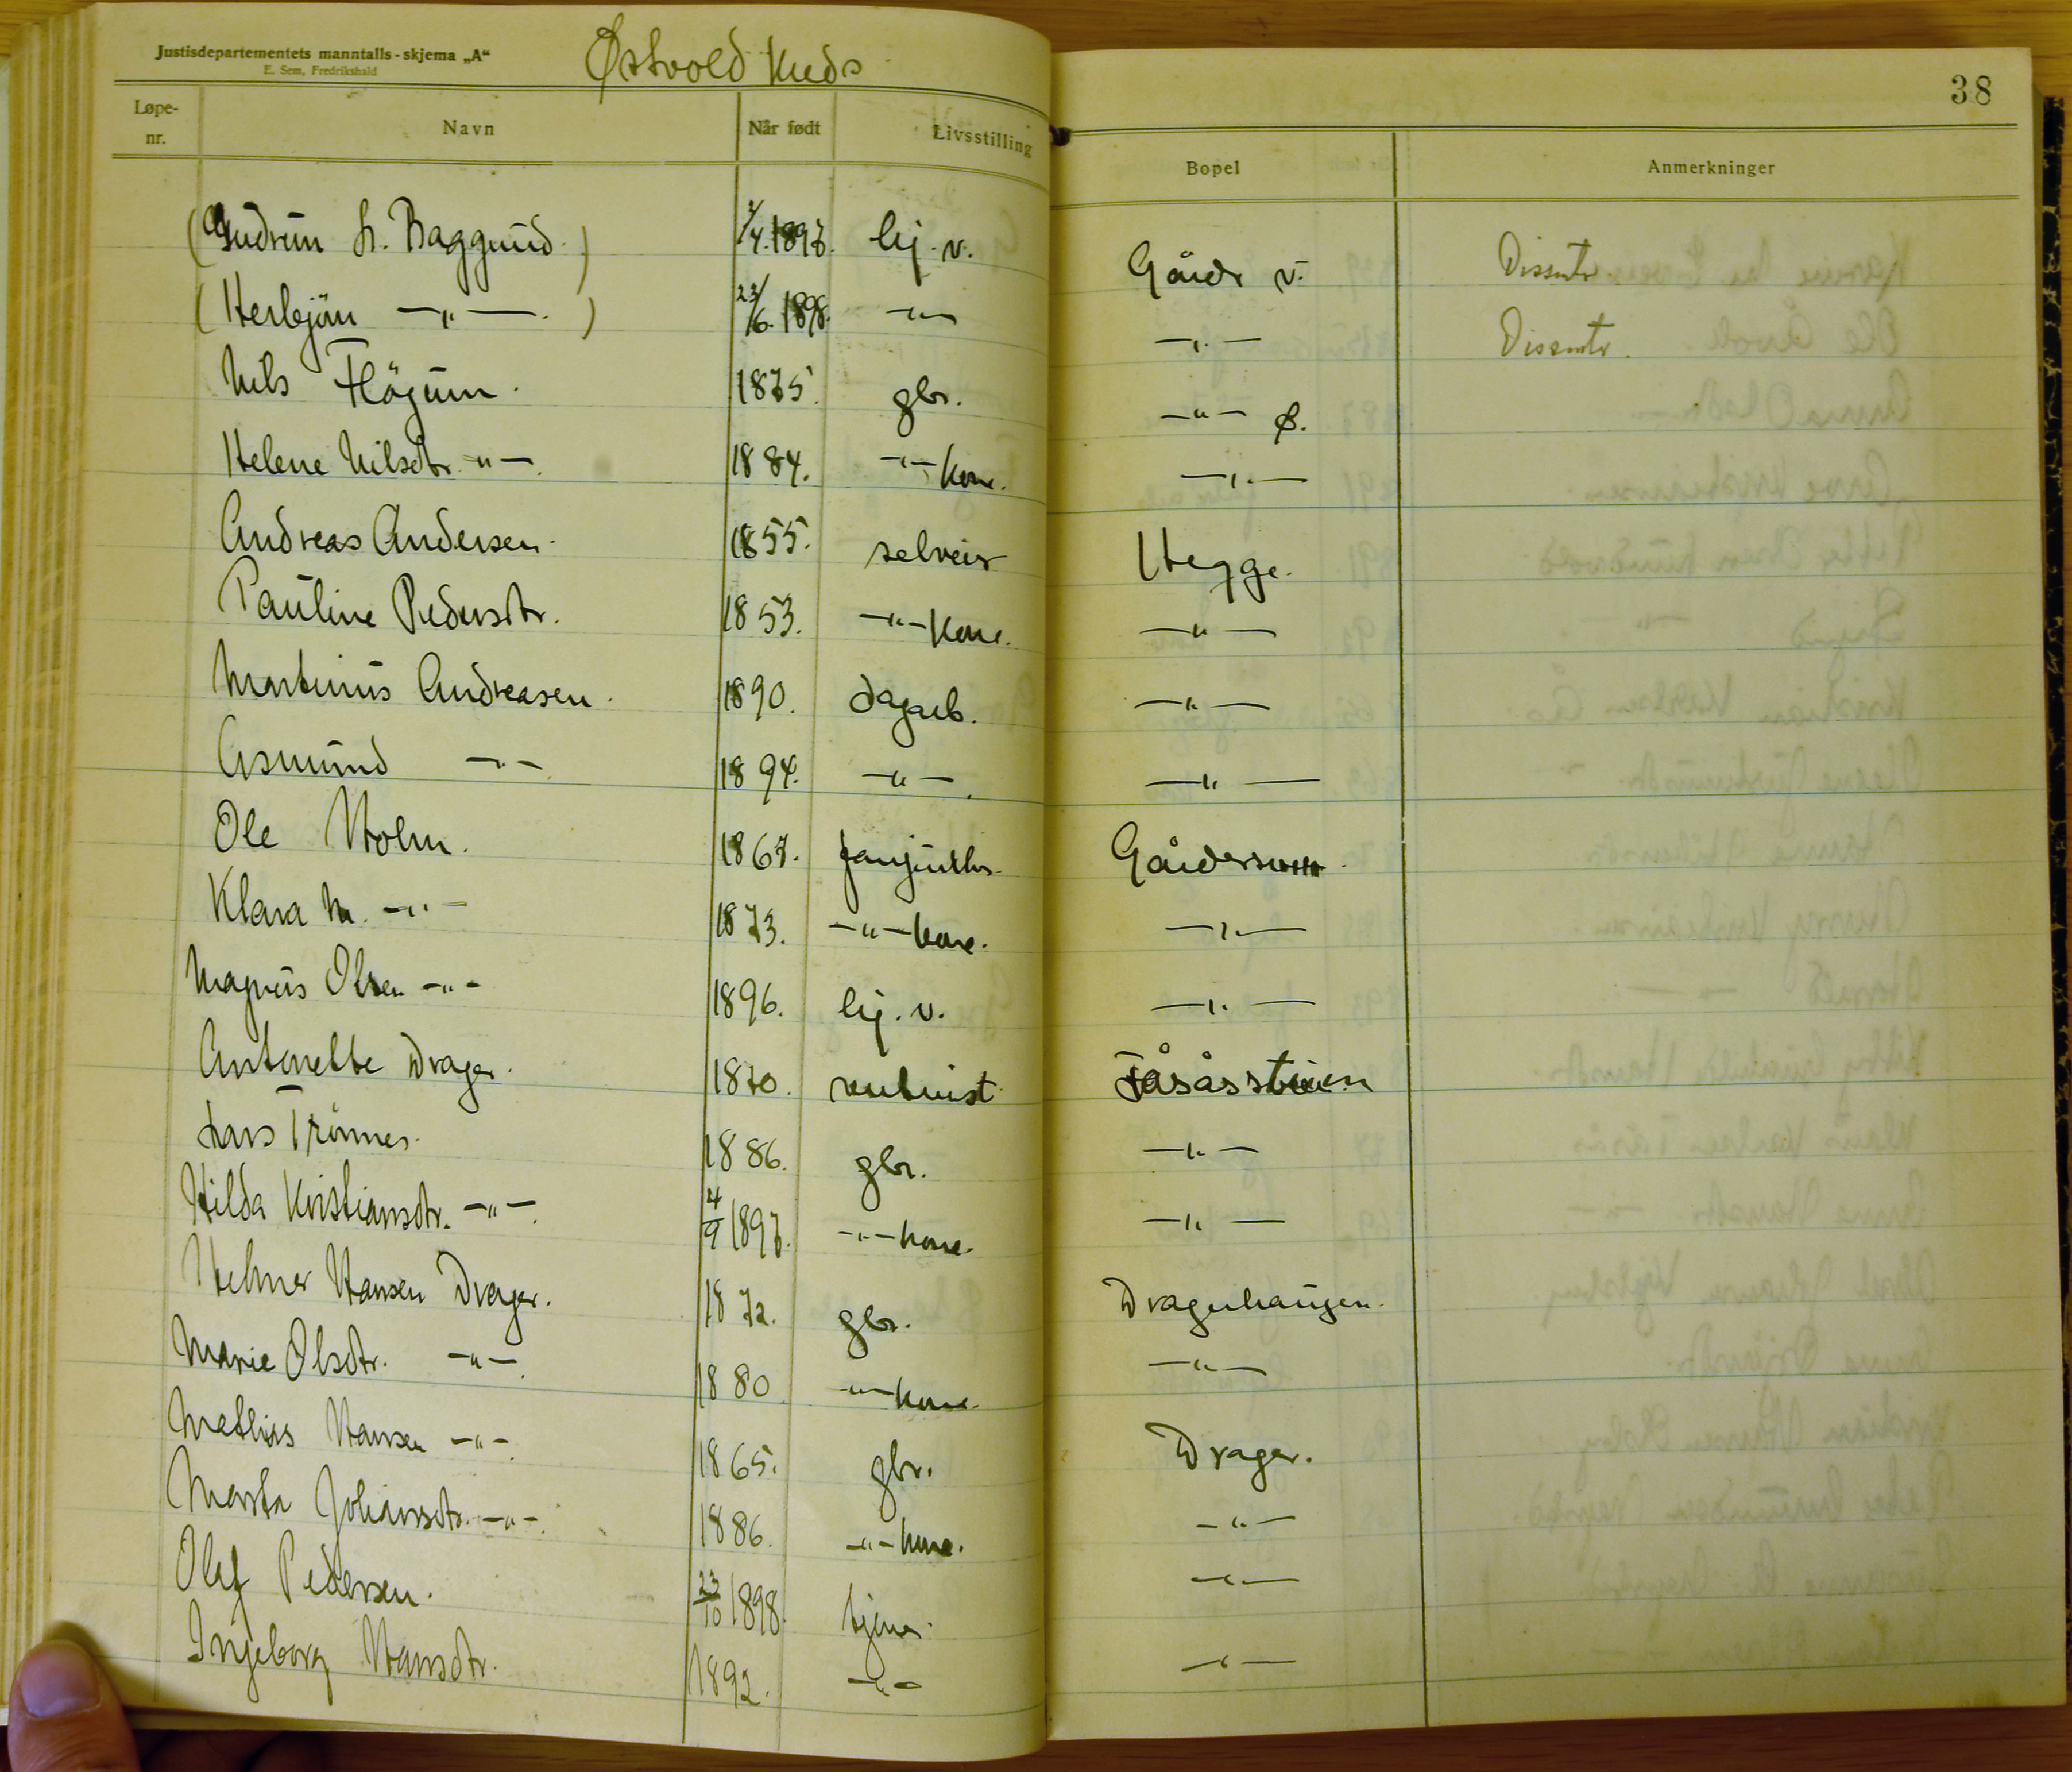 Justisdepartementets manntalls-skjema „A“
E. Sem, Fredrikshald
38
Løpe-nr. Navn Når født Livsstilling Bopel Anmerkninger
(Gudrun L. Baggerud) 1/4. 1897. hj. v. Gårder v. Dissentr.
(Herbjörn —„—.) 23/6. 1898. —„— —„— Dissentr.
Nils Flögum. 1875. gbr. —„— ø.
Helene Nilsdtr. —„—. 1884. —„— kone. —„—
Andreas Andersen. 1855. selveier Hegge.
Pauline Pedersdtr. 1853. —„— kone. —„—
Martinius Andreasen. 1890. dagarb. —„—
Asmund —„—. 1894. —„—. —„—
Ole Holm. 1867.
Klara M. —„— 1873. —„— kone. —„—
Magnus Olsen —„— 1896. hj. v. —„—
Antonette Drager. 1870. rentenist Fåsåsstuen
Lars Trönnes. 1886. gbr. —„—
Hilda Kristiansdtr. —„—. 4/9 1897. —„— kone. —„—
Helmer Hansen Drager. 1872. gbr. Dragerhaugen.
Marie Olsdtr. —„—. 1880 —„— kone. —„—
Mathias Hansen —„—. 1865. gbr. Drager.
Marta Johansdtr. —„—. 1886. —„— kone. —„—
Olaf Pedersen. 23/10 1898. tjener. —„—
Ingeborg Hansdtr. 1892. —„— —„—